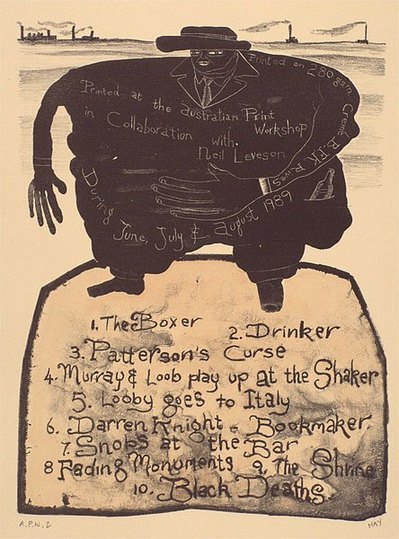 Printed at the australian Print
Workshop
in Collaboration with
Neil Leveson
During June, July & august 1989
Printed on 280 gsm Creme B.F.K Rives
1. The Boxer
2. Drinker
3. Patterson's Curse
4. Murray & Loob play up at the Shaker
5. Looby goes to Italy
6. Darren Knight - Bookmaker.
7. Snobs at the Bar
8 Fading Monuments 9. The Shrine
10. Black Deaths.
A.P.W. 2
HAY